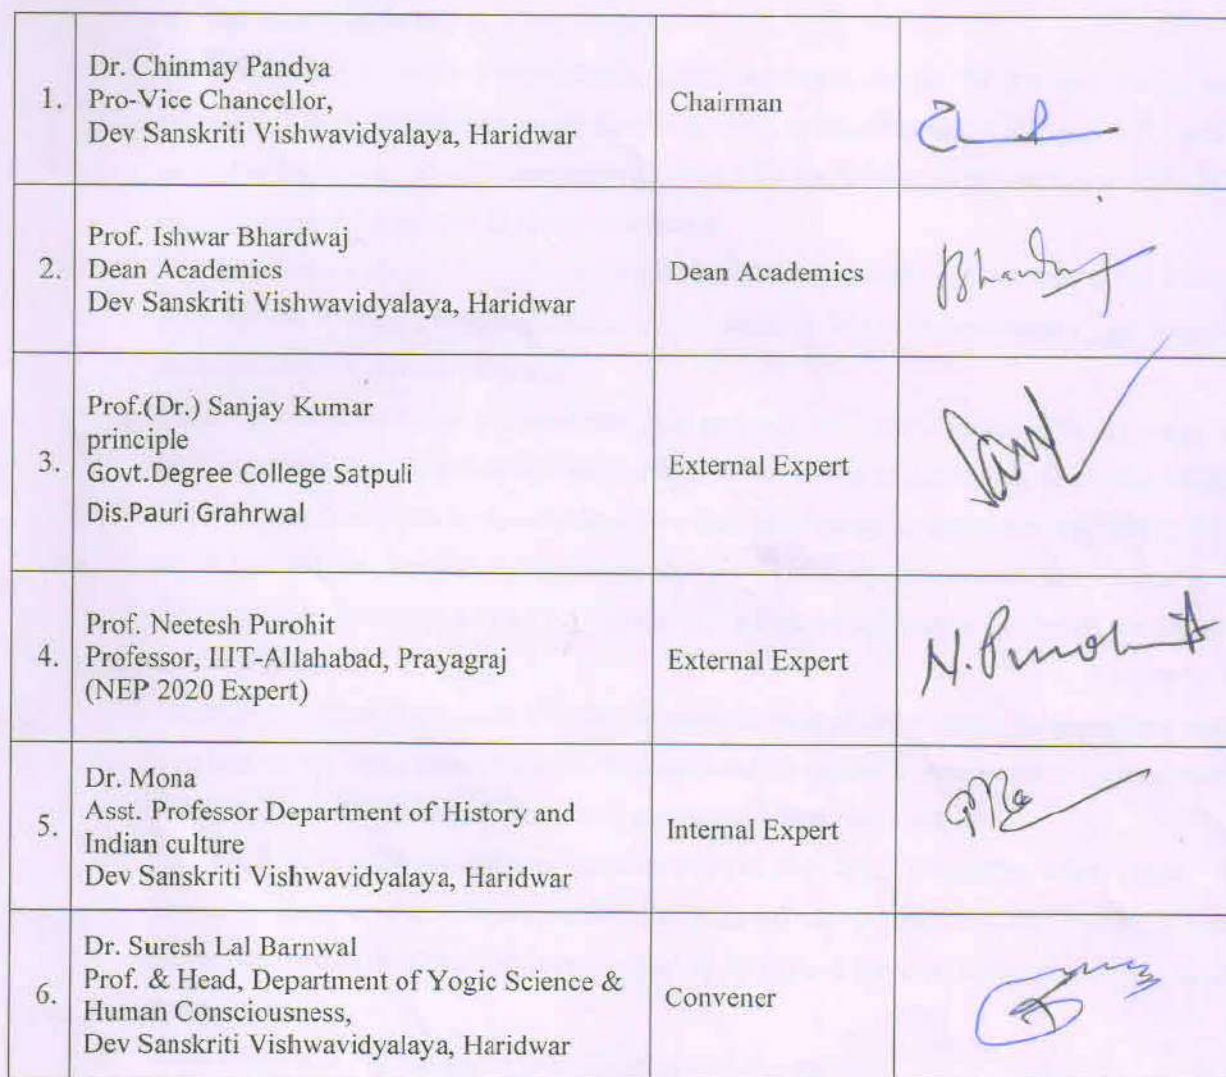 1.
Dr. Chinmay Pandya
Pro-Vice Chancellor,
Dev Sanskriti Vishwavidyalaya, Haridwar
Chairman
2.
Prof. Ishwar Bhardwaj
Dean Academics
Dev Sanskriti Vishwavidyalaya, Haridwar
Dean Academics
Bhardwaj
3.
Prof.(Dr.) Sanjay Kumar
principle
Govt.Degree College Satpuli
Dis.Pauri Grahrwal
External Expert
4.
Prof. Neetesh Purohit
Professor, IIIT-Allahabad, Prayagraj
(NEP 2020 Expert)
External Expert
N. Purohit
5.
Dr. Mona
Asst. Professor Department of History and
Indian culture
Dev Sanskriti Vishwavidyalaya, Haridwar
Internal Expert
6.
Dr. Suresh Lal Barnwal
Prof. & Head, Department of Yogic Science &
Human Consciousness,
Dev Sanskriti Vishwavidyalaya, Haridwar
Convener